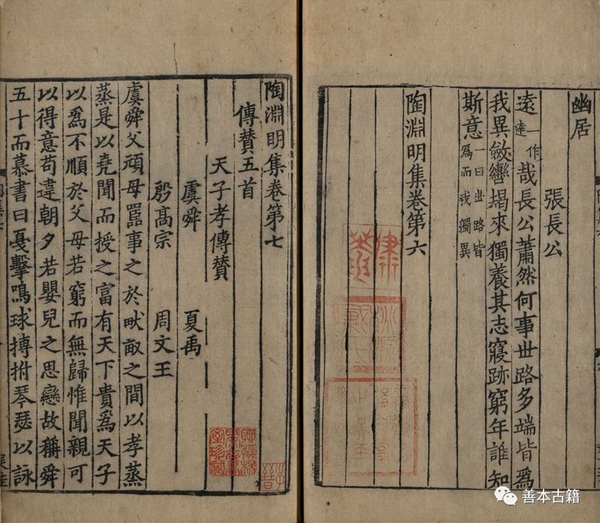 幽居
張長公
遠一作達哉長公蕭然何事世路多端皆為
我異斂轡朅來獨養其志寢跡窮年誰知
斯意一曰世路皆為而我獨異
陶淵明集卷第六
陶淵明集卷第七
傳贊五首
天子孝傳贊
虞舜 夏禹
殷髙宗 周文王
虞舜父頑母嚚事之於畎畝之間以孝蒸
蒸是以堯聞而授之富有天下貴為天子
以為不順於父母若窮而無歸惟聞親可
以得意苟違朝夕若嬰兒之思戀故稱舜
五十而慕書曰戛擊鳴球搏拊琴瑟以詠
善本古籍